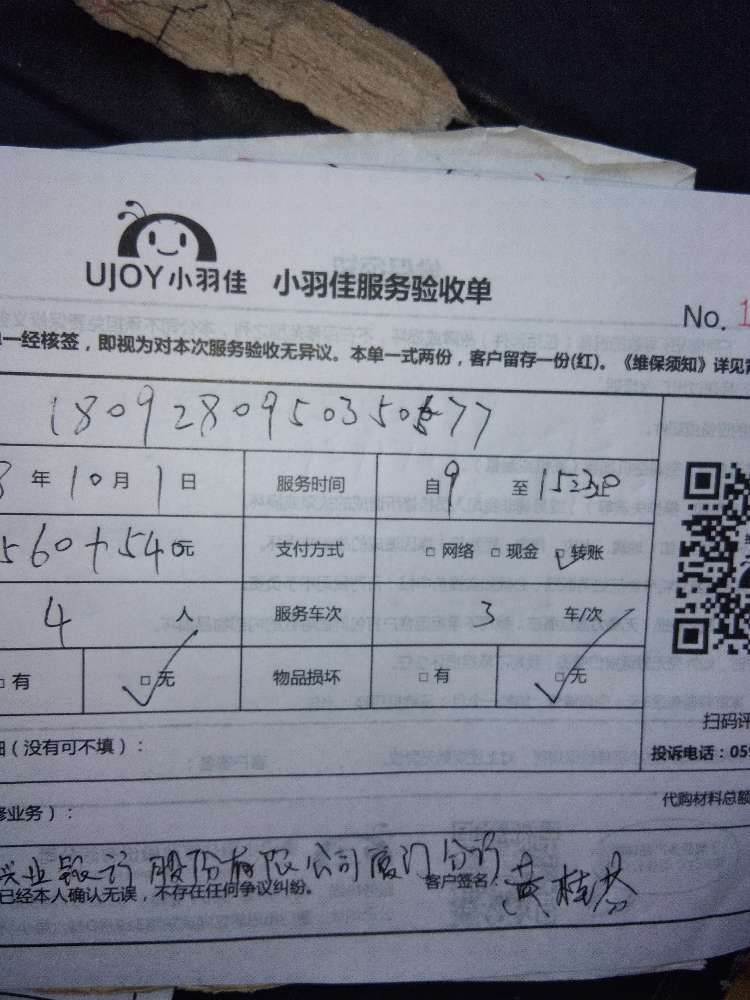 UJOY小羽佳 小羽佳服务验收单
No. 1
一经核签，即视为对本次服务验收无异议。本单一式两份，客户留存一份(红)。《维保须知》详见
年10月1日 服务时间 自9 至15:30
560+540元 支付方式 □网络 □现金 □转账
4 人 服务车次 3 车/次
□有 □无 物品损坏 □有 □无
扫码评
(没有可不填)：
投诉电话：059
代购材料总额
修业务)：
兴业银行股份有限公司厦门分行
已经本人确认无误，不存在任何争议纠纷。 客户签名：黄桂